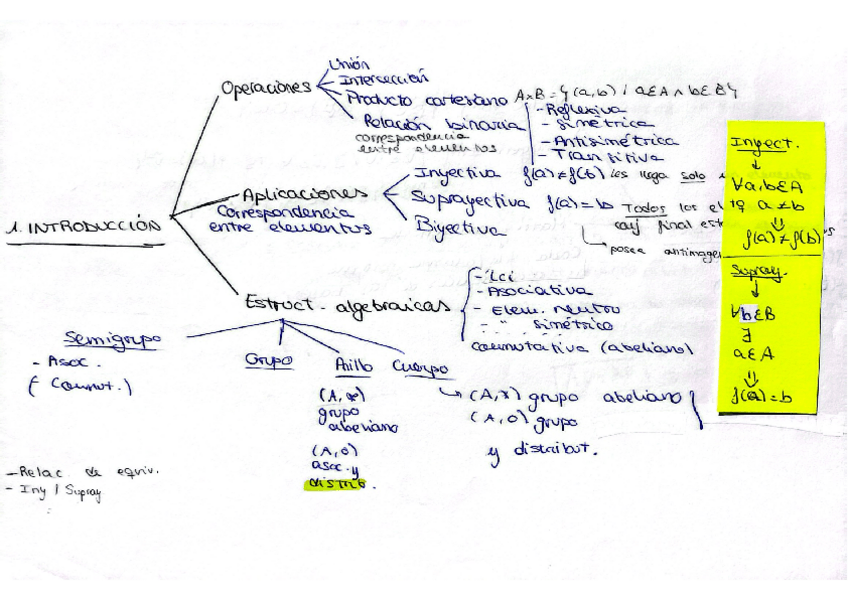 1. INTRODUCCIÓN
Operaciones
Unión
Intersección
Producto cartesiano AxB = {(a,b) / a∈A ∧ b∈B}
Relación binaria
correspondencia
entre elementos
- Reflexiva
- Simétrica
- Antisimétrica
- Transitiva
Aplicaciones
Correspondencia
entre elementos
Inyectiva f(a)≠f(b) les llega solo
Suprayectiva f(a)=b Todos los el
conj final est
posea antimagen
Biyectiva
Estruct. algebraicas
- Lci
- Asociativa
- Elem. neutro
- " simétrico
conmutativa (abeliano)
Semigrupo
- Asoc.
(Conmut.)
Grupo
Anillo
(A,*)
grupo
abeliano
(A,o)
asoc. y
distrib.
Cuerpo
(A,*) grupo abeliano
(A,o) grupo
y distribut.
- Relac. de equiv.
- Iny / Supray
Inyect.
↓
∀a,b∈A
tq a≠b
⇓
f(a)≠f(b)
Supray.
↓
∀b∈B
∃
a∈A
⇓
f(a)=b